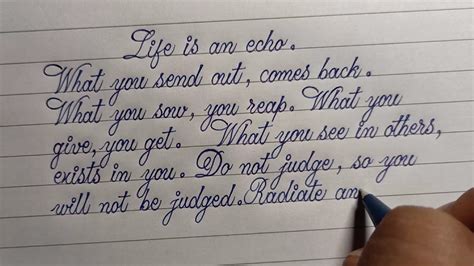 Life is an echo.
What you send out, comes back.
What you sow, you reap. What you
give, you get. What you see in others,
exists in you. Do not judge, so you
will not be judged. Radiate an